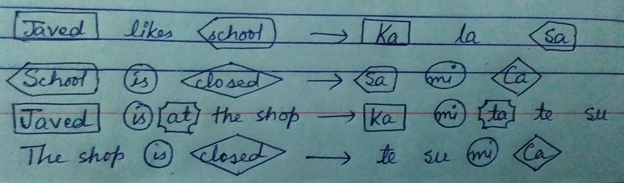 Javed likes school → Ka la Sa
School is closed → Sa mi Ca
Javed is at the shop → ka mi ta te su
The shop is closed → te su mi Ca